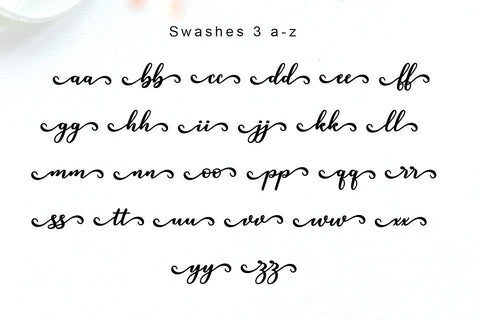 Swashes 3 a-z
aa bb cc dd ee ff
gg hh ii jj kk ll
mm nn oo pp qq rr
ss tt uu vv ww xx
yy zz